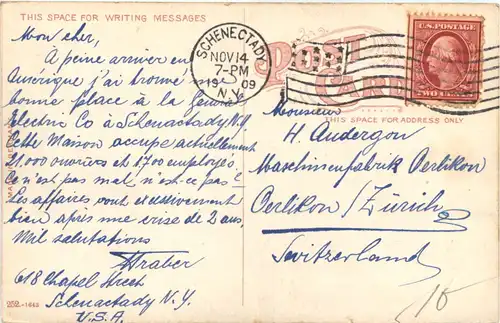 THIS SPACE FOR WRITING MESSAGES
Mon cher,
A peine arriver en
Amérique j'ai trouvé
bonne place à la General
Electric Co à Schenactady N.Y.
Cette Maison accupe actuellement
11.000 ouvriers et 1700 employés.
Ce n'est pas mal n'est-ce pas!
Les affaires, vont excessivement
bien après une crise de 2 ans.
Mil salutations
Straber
618 Chapel Street
Schenactady N.Y.
U.S.A.
252.-1643
SCHENECTADY
NOV 14
7-PM
1909
N.Y.
POST CARD
U.S. POSTAGE
TWO CENTS
THIS SPACE FOR ADDRESS ONLY
Monsieur
H. Andergon
Maschinenfabrik Oerlikon
Oerlikon/Zürich
Switzerland
10